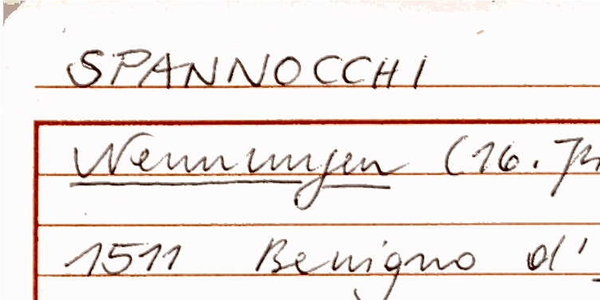 SPANNOCCHI
Nennungen (16. Jh
1511 Benigno d'